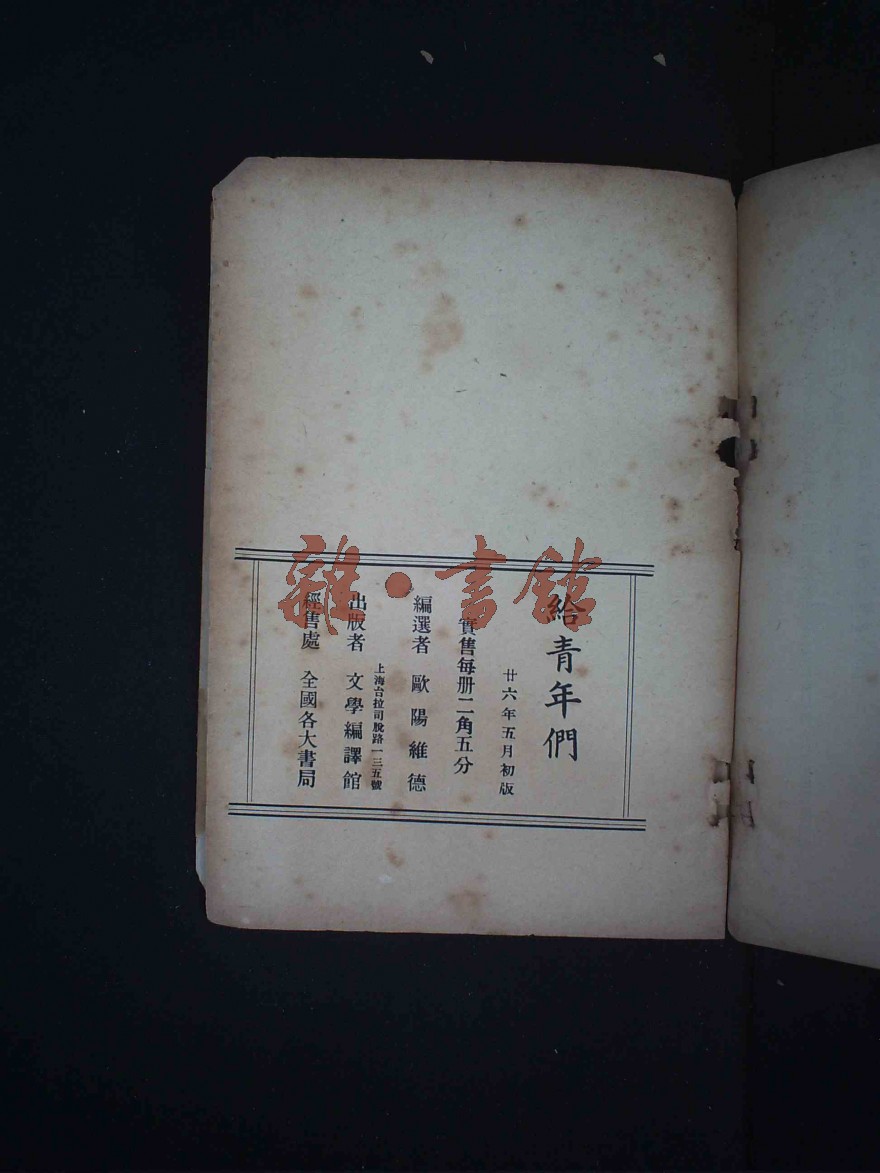 雜·書館
給青年們
廿六年五月初版
實售每册二角五分
編選者 歐陽維德
上海台拉司脫路一三五號
出版者 文學編譯館
經售處 全國各大書局